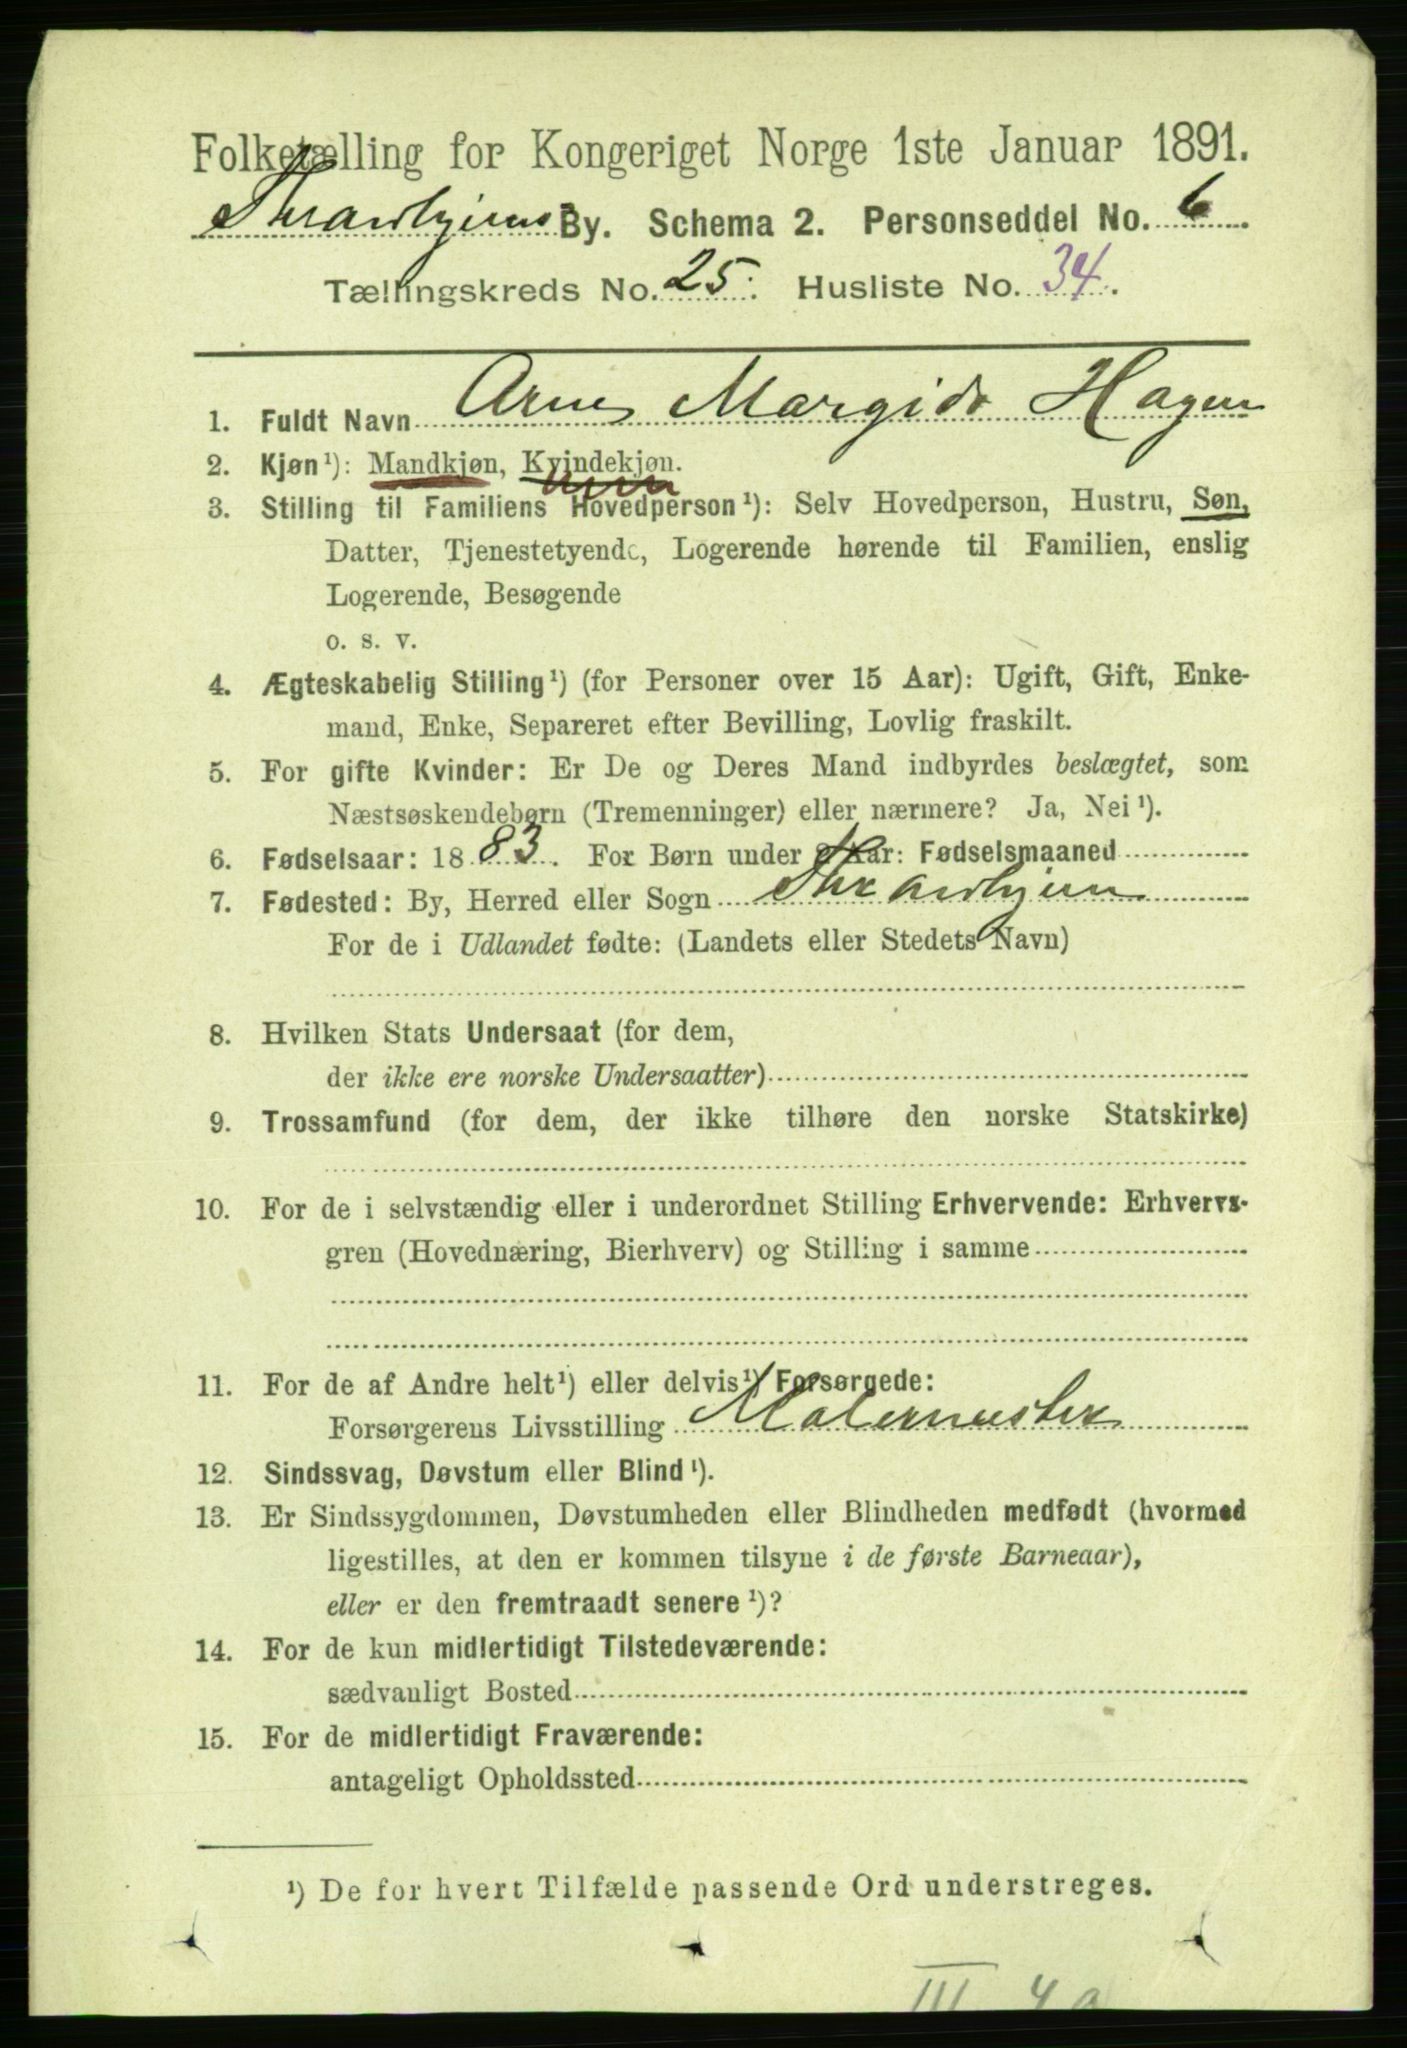 Folketælling for Kongeriget Norge 1ste Januar 1891.
Throndhjems By. Schema 2. Personseddel No. 6
Tællingskreds No. 25. Husliste No. 34.
1. Fuldt Navn Arne Margido Hagen
2. Kjøn ¹): Mandkjøn, Kvindekjøn.
3. Stilling til Familiens Hovedperson ¹): Selv Hovedperson, Hustru, Søn,
Datter, Tjenestetyende, Logerende hørende til Familien, enslig
Logerende, Besøgende
o. s. v.
4. Ægteskabelig Stilling ¹) (for Personer over 15 Aar): Ugift, Gift, Enke-
mand, Enke, Separeret efter Bevilling, Lovlig fraskilt.
5. For gifte Kvinder: Er De og Deres Mand indbyrdes beslægtet, som
Næstsøskendebørn (Tremenninger) eller nærmere? Ja, Nei ¹).
6. Fødselsaar: 1883. For Børn under 2 Aar: Fødselsmaaned
7. Fødested: By, Herred eller Sogn Throndhjem
For de i Udlandet fødte: (Landets eller Stedets Navn)
8. Hvilken Stats Undersaat (for dem,
der ikke ere norske Undersaatter)
9. Trossamfund (for dem, der ikke tilhøre den norske Statskirke)
10. For de i selvstændig eller i underordnet Stilling Erhvervende: Erhvervs-
gren (Hovednæring, Bierhverv) og Stilling i samme
11. For de af Andre helt ¹) eller delvis ¹) Forsørgede:
Forsørgerens Livsstilling Malermester
12. Sindssvag, Døvstum eller Blind ¹).
13. Er Sindssygdommen, Døvstumheden eller Blindheden medfødt (hvormed
ligestilles, at den er kommen tilsyne i de første Barneaar),
eller er den fremtraadt senere ¹)?
14. For de kun midlertidigt Tilstedeværende:
sædvanligt Bosted
15. For de midlertidigt Fraværende:
antageligt Opholdssted
¹) De for hvert Tilfælde passende Ord understreges.
III 4a